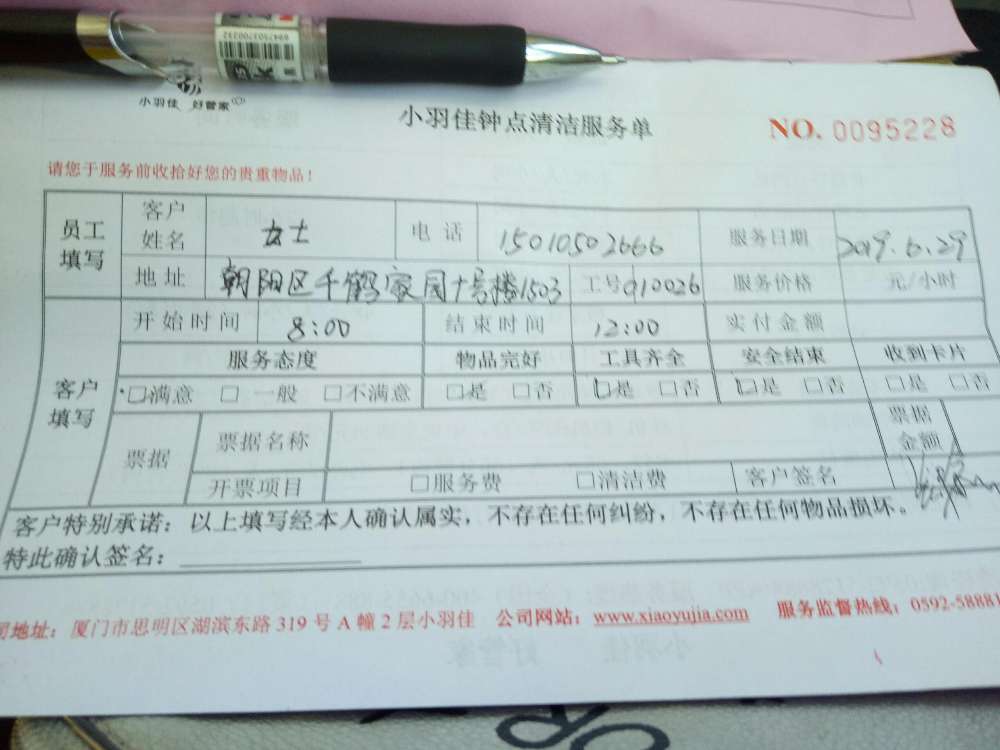 6947503700232
小羽佳 好管家
小羽佳钟点清洁服务单
NO. 0095228
请您于服务前收拾好您的贵重物品！
员工填写 客户姓名 女士 电话 15010502666 服务日期 2019.6.29
地址 朝阳区千鹤家园十号楼1503 工号 010026 服务价格 元/小时
客户填写 开始时间 8:00 结束时间 12:00 实付金额
服务态度 物品完好 工具齐全 安全结束 收到卡片
□满意 □一般 □不满意 □是 □否 □是 □否 □是 □否 □是 □否
票据 票据名称 票据金额
开票项目 □服务费 □清洁费 客户签名
客户特别承诺：以上填写经本人确认属实，不存在任何纠纷，不存在任何物品损坏。
特此确认签名：
地址：厦门市思明区湖滨东路 319 号 A 幢 2 层小羽佳 公司网站：www.xiaoyujia.com 服务监督热线：0592-58881